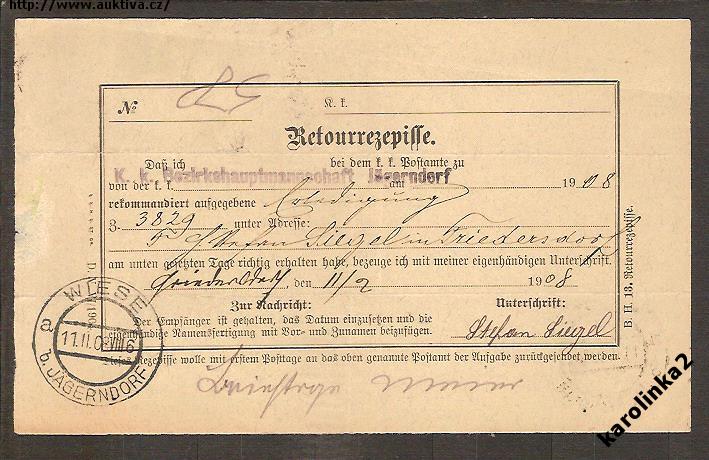 http://www.auktiva.cz/
No
K. k.
Retourrezepisse.
Daß ich bei dem k. k. Postamte zu
K. k. Bezirkshauptmannschaft Jägerndorf
von der k. k. am 1908
rekommandiert aufgegebene Erledigung
Z. 3829 unter Adresse:
Stefan Siegel in Friedersdorf
am unten gesetzten Tage richtig erhalten habe, bezeuge ich mit meiner eigenhändigen Unterschrift.
Friedersdorf, den 11/2 1908
Zur Nachricht: Unterschrift:
Der Empfänger ist gehalten, das Datum einzusetzen und die
eigenhändige Namensfertigung mit Vor- und Zunamen beizufügen.
Stefan Siegel
Dieses Rezepisse wolle mit erstem Postage an das oben genannte Postamt der Aufgabe zurückgesendet werden.
B. H. 13. Retourrezepisse.
WIESE
a
11.II.08
b. JÄGERNDORF
karolinka2